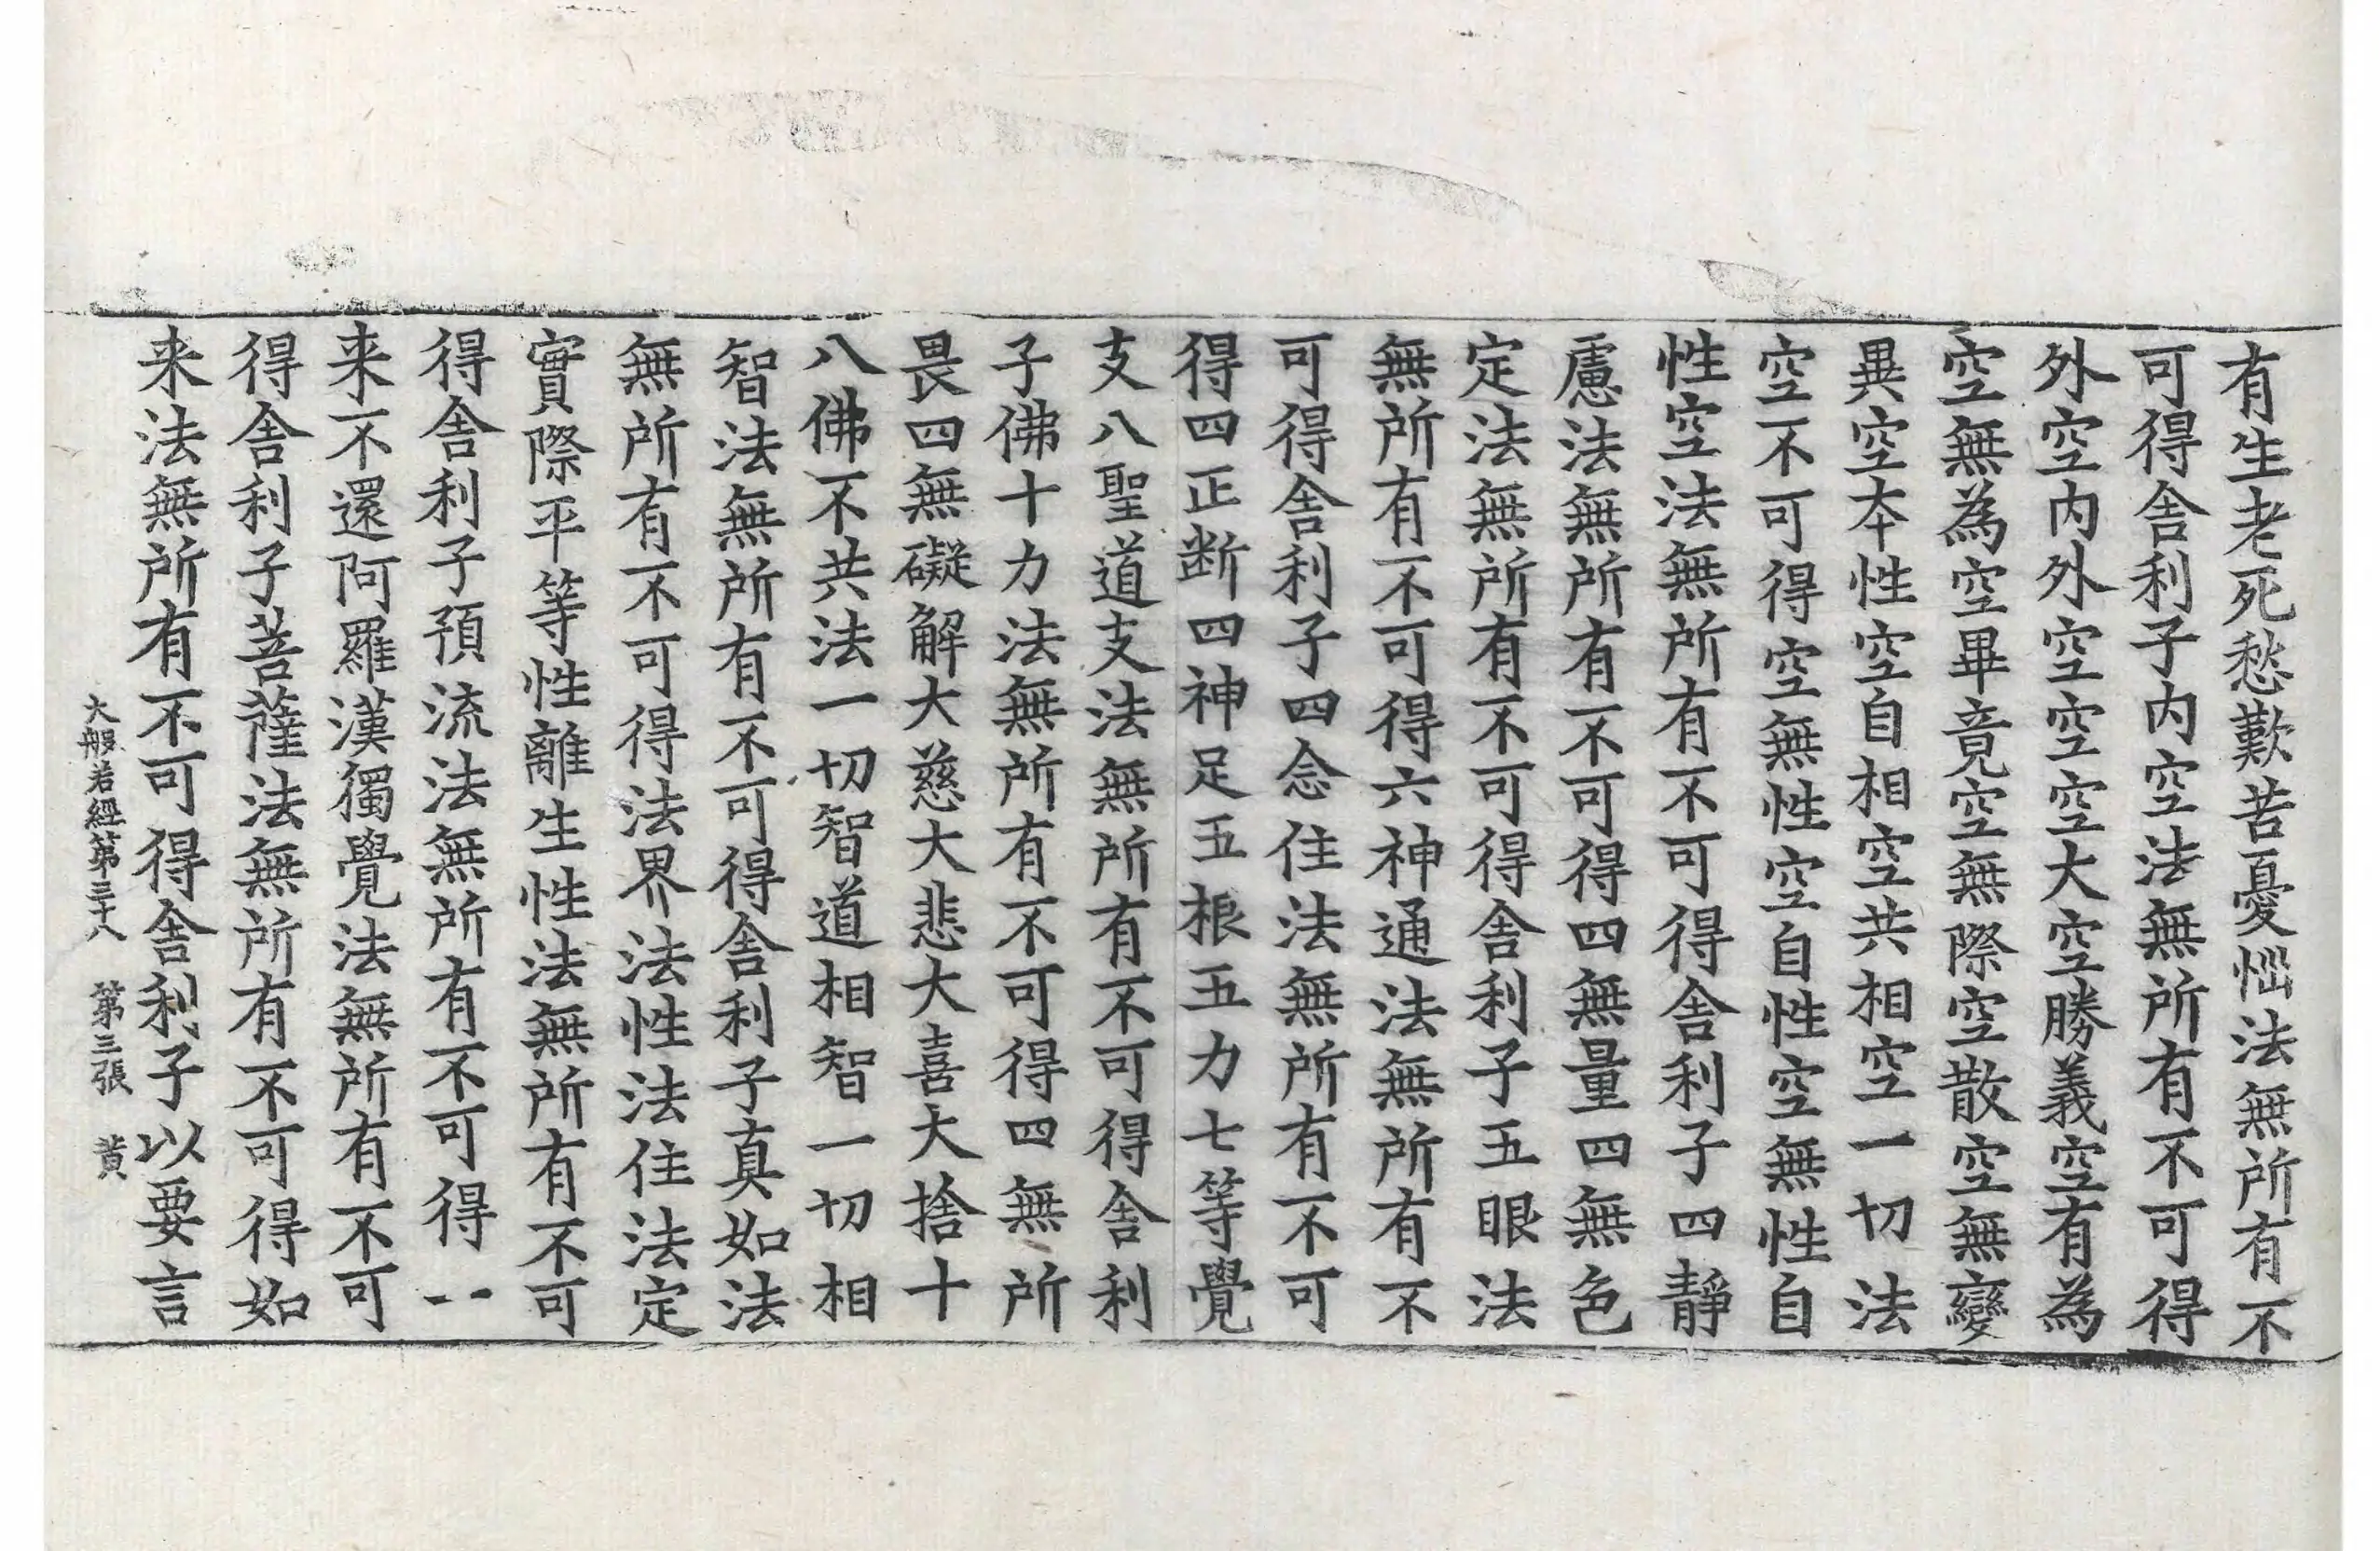 有生老死愁歎苦憂惱法無所有不
可得舎利子内空法無所有不可得
外空内外空空空大空勝義空有為
空無為空畢竟空無際空散空無變
異空本性空自相空共相空一切法
空不可得空無性空自性空無性自
性空法無所有不可得舎利子四靜
慮法無所有不可得四無量四無色
定法無所有不可得舎利子五眼法
無所有不可得六神通法無所有不
可得舎利子四念住法無所有不可
得四正断四神足五根五力七等覺
支八聖道支法無所有不可得舎利
子佛十力法無所有不可得四無所
畏四無礙解大慈大悲大喜大捨十
八佛不共法一切智道相智一切相
智法無所有不可得舎利子真如法
無所有不可得法界法性法住法定
實際平等性離生性法無所有不可
得舎利子預流法無所有不可得一
来不還阿羅漢獨覺法無所有不可
得舎利子菩薩法無所有不可得如
来法無所有不可得舎利子以要言
大般若經第三十八　第三張　黄